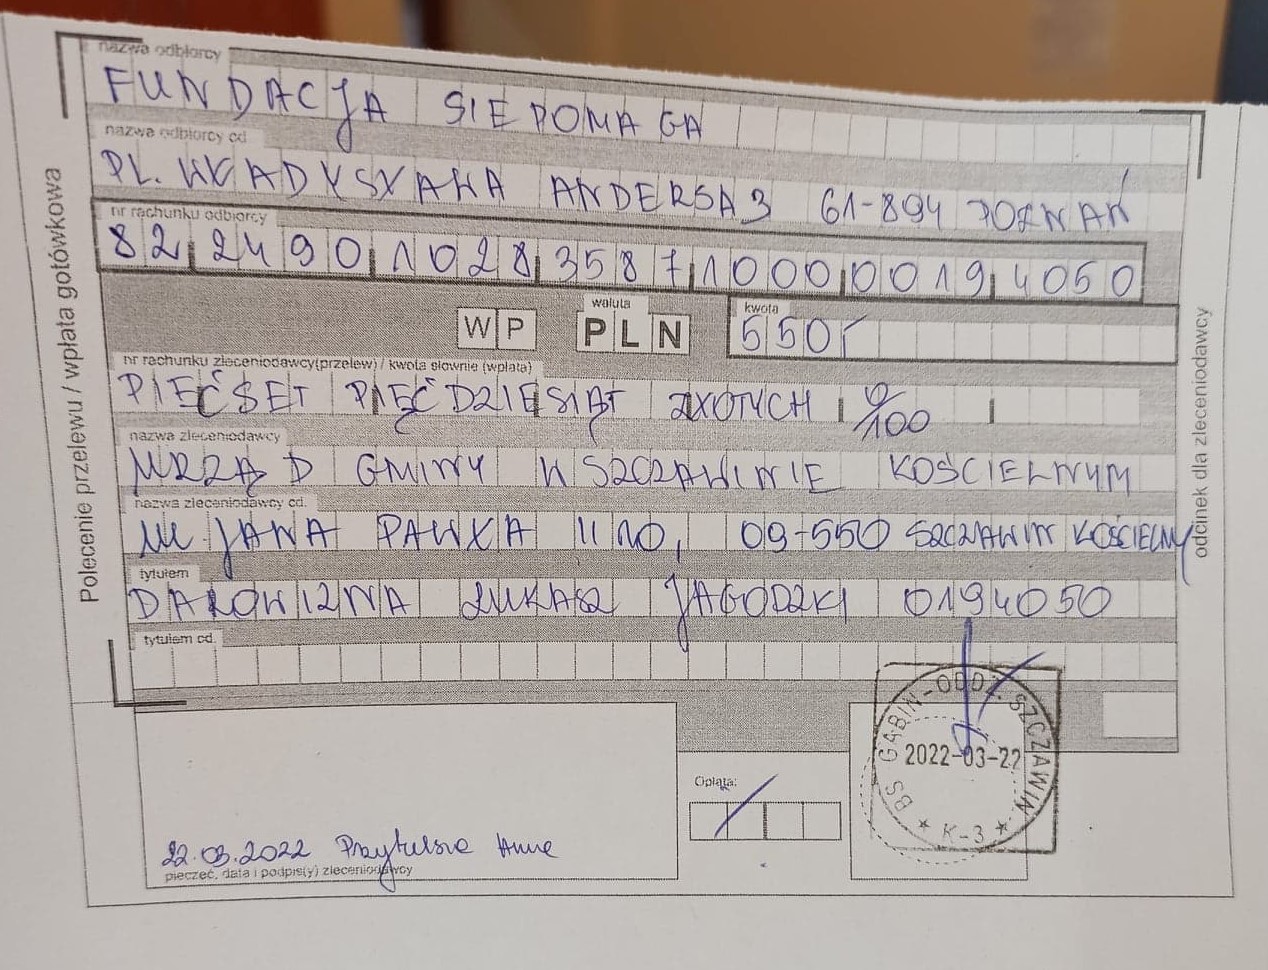 nazwa odbiorcy
FUNDACJA SIEPOMAGA
nazwa odbiorcy cd.
PL. WŁADYSŁAWA ANDERSA 3 61-894 POZNAŃ
nr rachunku odbiorcy
82 2490 1028 3587 1000 0019 4050
WP
waluta
PLN
kwota
550,-
nr rachunku zleceniodawcy(przelew) / kwota słownie (wpłata)
PIĘĆSET PIĘĆDZIESIĄT ZŁOTYCH 0/100
nazwa zleceniodawcy
URZĄD GMINY W SZCZAWINIE KOŚCIELNYM
nazwa zleceniodawcy cd.
UL JANA PAWŁA II 10, 09-550 SZCZAWIN KOŚCIELNY
tytułem
DAROWIZNA ŁUKASZ JAGODZKI 0194050
tytułem cd.
Polecenie przelewu / wpłata gotówkowa
odcinek dla zleceniodawcy
Opłata:
BS GĄBIN-ODDZ. SZCZAWIN
2022-03-22
* K-3 *
22.03.2022
pieczęć, data i podpis(y) zleceniodawcy